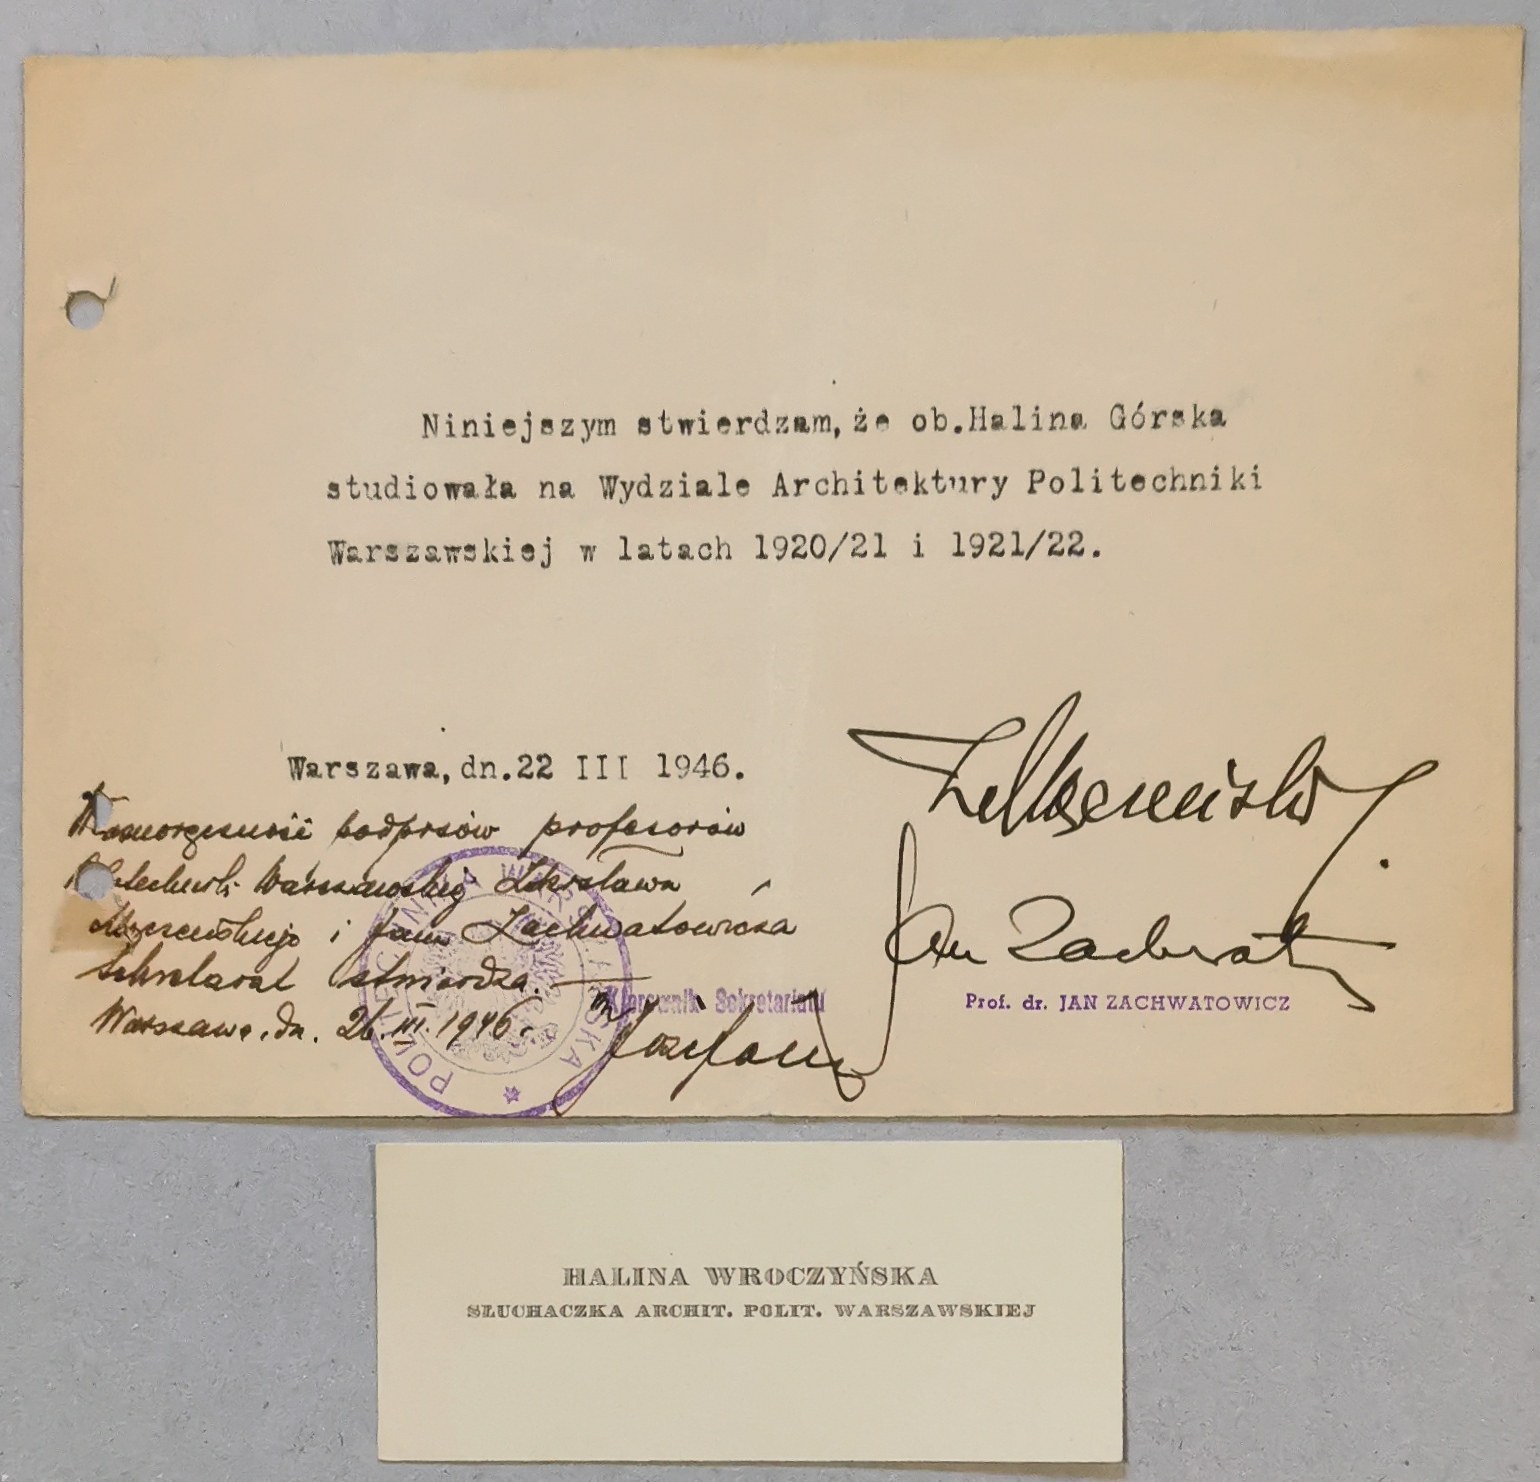 Niniejszym stwierdzam, że ob.Halina Górska
studiowała na Wydziale Architektury Politechniki
Warszawskiej w latach 1920/21 i 1921/22.
Warszawa, dn.22 III 1946.
podpisów profesorów
Warszawskiej Zdzisława
Mączeńskiego i Jana Zachwatowicza
Sekretariat stwierdza.
Warszawa, dn. 26.III.1946.
Kierownik Sekretariatu
Z Mączeński
Jan Zachwatowicz
Prof. dr. JAN ZACHWATOWICZ
POLITECHNIKA WARSZAWSKA
HALINA WROCZYŃSKA
SŁUCHACZKA ARCHIT. POLIT. WARSZAWSKIEJ